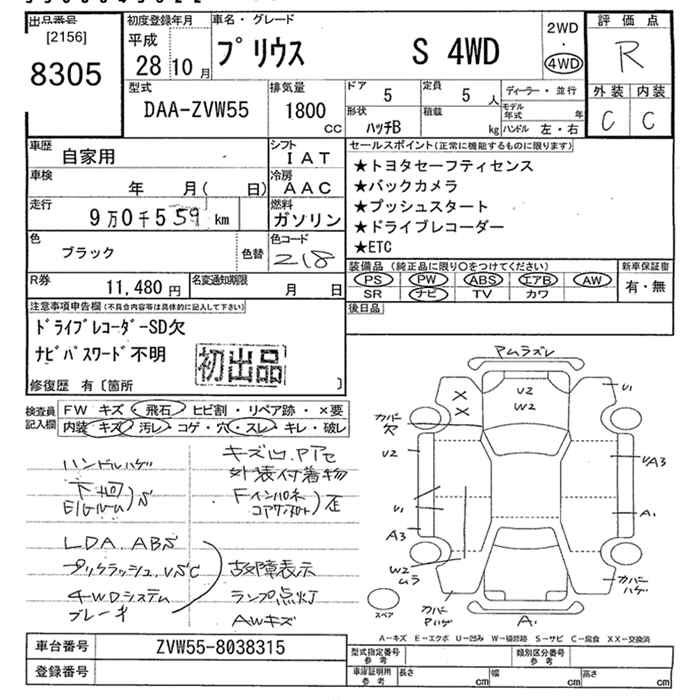 出品番号
[2156]
8305
初度登録年月
平成
28 10 月
車名・グレード
プリウス S 4WD
2WD
・
4WD
評価点
R
外装 内装
C C
型式
DAA-ZVW55
排気量
1800
CC
ドア
5
定員
5 人
ディーラー・並行
モデル年式 年
形状
ハッチB
積載
kg
ハンドル 左・右
車歴
自家用
シフト
IAT
車検
年 月( 日)
冷房
AAC
走行
9万0千559 km
燃料
ガソリン
色
ブラック
色替
色コード
218
R券
11,480 円
名変通知期限
月 日
セールスポイント(正常に機能するものに限ります)
★トヨタセーフティセンス
★バックカメラ
★プッシュスタート
★ドライブレコーダー
★ETC
装備品 (純正品に限り○をつけてください)
PS PW ABS エアB AW
SR ナビ TV カワ
新車保証書
有・無
後日品
注意事項申告欄(不具合内容等は具体的に記入して下さい)
ドライブレコーダーSD欠
ナビパスワード不明
初出品
修復歴 有〔箇所 〕
検査員記入欄
FW キズ・飛石・ヒビ割・リペア跡・×要
内装・キズ・汚レ・コゲ・穴・スレ・キレ・破レ
ハンドルハゲ
下廻
E/Gルーム
S
LDA. ABS
プリクラッシュ. VSC
4WDシステム
ブレーキ
キズ凹. P
外装付着物
Fインパネ
コアサポート
歪
故障表示
ランプ点灯
AWキズ
アムラズレ
U2
W2
X
X
U1
カバー欠
U2
UA3
U1
A1
A3
W2
ムラ
カバーPハゲ
カバーハゲ
スペア
A1
A-キズ E-エクボ U-凹み W-補修跡 S-サビ C-腐食 XX-交換済
車台番号
ZVW55-8038315
登録番号
型式指定番号
参考
類別区分番号
参考
車庫証明用
参考
長さ cm
幅 cm
高さ cm